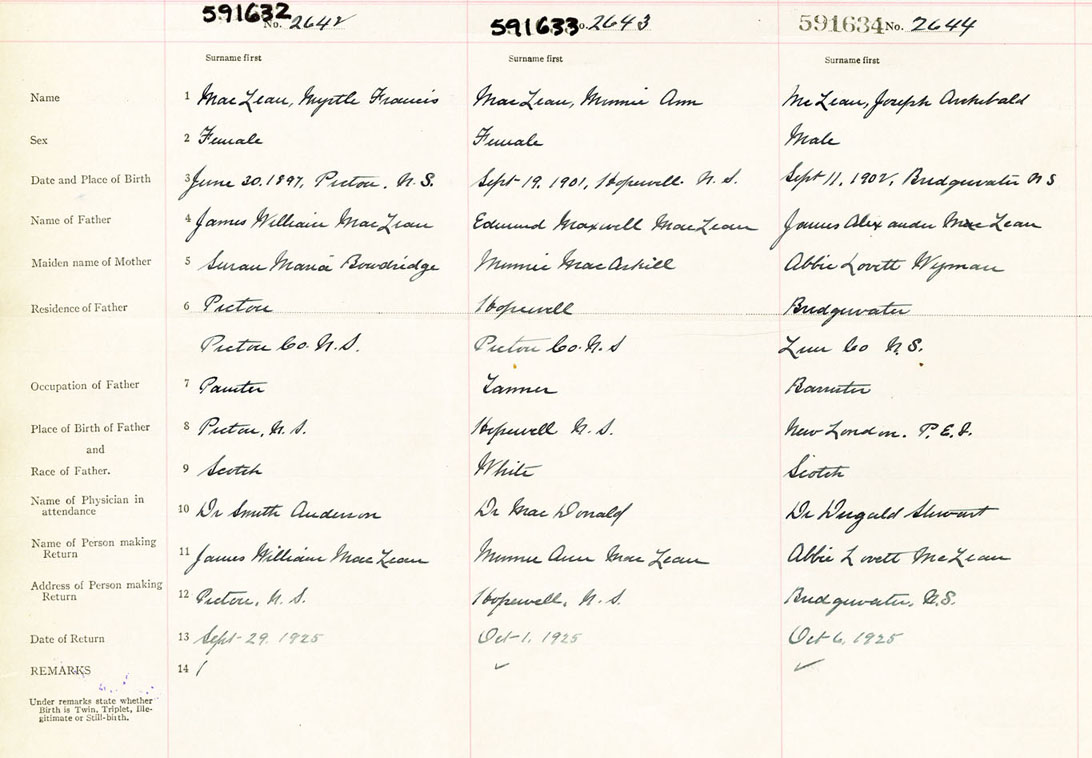 591632 No. 2642 591633 No. 2643 591634 No. 2644
Surname first Surname first Surname first
Name 1 MacLean, Myrtle Francis MacLean, Minnie Ann McLean, Joseph Archibald
Sex 2 Female Female Male
Date and Place of Birth 3 June 30. 1897, Pictou, N.S. Sept 19, 1901, Hopewell. N.S. Sept 11, 1902, Bridgewater N S
Name of Father 4 James William MacLean Edmund Maxwell MacLean James Alexander McLean
Maiden name of Mother 5 Susan Maria Bowdridge Minnie MacAskill Abbie Lovett Wyman
Residence of Father 6 Pictou Hopewell Bridgewater
Pictou Co. N.S. Pictou Co. N.S Lun Co N.S.
Occupation of Father 7 Painter Tanner Barrister
Place of Birth of Father 8 Pictou, N.S. Hopewell N.S. New London. P.E.I.
and
Race of Father. 9 Scotch White Scotch
Name of Physician in
attendance 10 Dr Smith Anderson Dr MacDonald Dr Dugald Stewart
Name of Person making
Return 11 James William MacLean Minnie Ann MacLean Abbie Lovett McLean
Address of Person making
Return 12 Pictou, N.S. Hopewell, N.S. Bridgewater, N.S.
Date of Return 13 Sept-29, 1925 Oct-1, 1925 Oct 6, 1925
REMARKS 14
Under remarks state whether
Birth is Twin, Triplet, Ille-
gitimate or Still-birth.